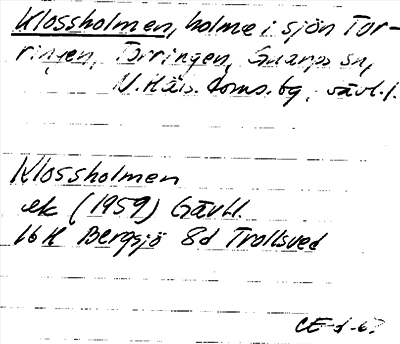 Klossholmen, holme i sjön Tor-
ringen, Torringen, Gnarps sn,
N. Häls. doms.bg, Gävl.l.
Klossholmen
ek (1959) Gävl.l.
16H Bergsjö 8d Trollsved
CE-1-67